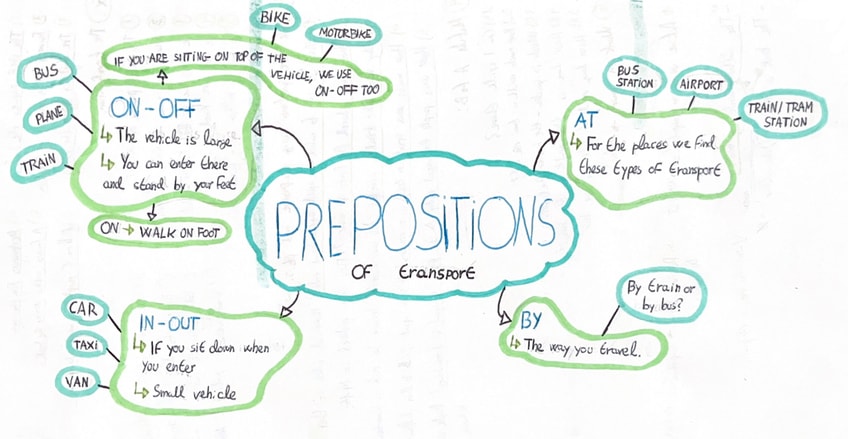 BIKE
MOTORBIKE
IF YOU ARE SITTING ON TOP OF THE
VEHICLE, WE USE
ON-OFF TOO
BUS
PLANE
TRAIN
ON-OFF
↳ The vehicle is large
↳ You can enter there
and stand by your feet
ON → WALK ON FOOT
BUS
STATION
AIRPORT
TRAIN/TRAM
STATION
AT
↳ For the places we find
these types of transport
PREPOSITIONS
OF transport
CAR
TAXI
VAN
IN-OUT
↳ IF you sit down when
you enter
↳ Small vehicle
By train or
by bus?
BY
↳ The way you travel.